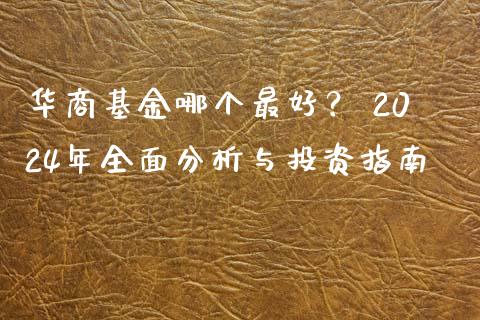 华商基金哪个最好？ 20
24年全面分析与投资指南